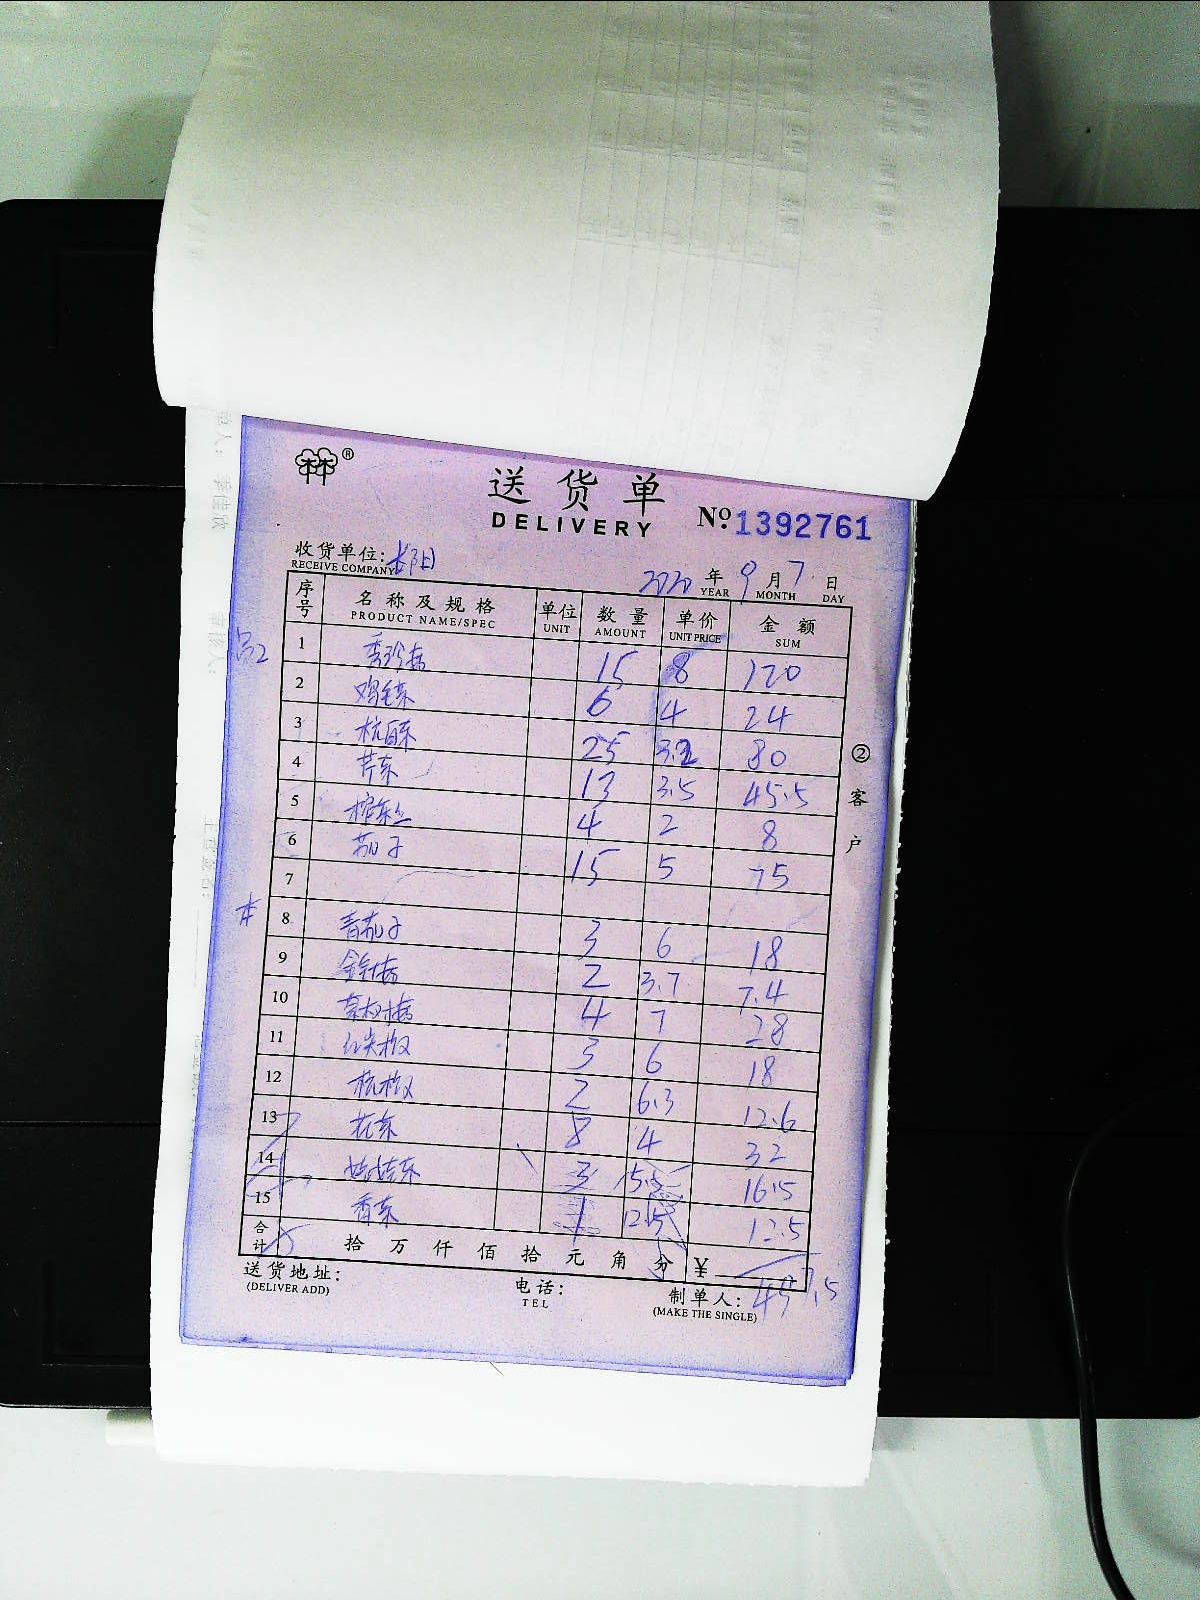 送货单
DELIVERY
№ 1392761
收货单位: 长阳
RECEIVE COMPANY
2020 年 9 月 7 日
YEAR MONTH DAY
序号 名称及规格 单位 数量 单价 金额
PRODUCT NAME/SPEC UNIT AMOUNT UNIT PRICE SUM
1 秀珍菇 15 8 120
2 鸡毛菜 6 4 24
3 杭白菜 25 3.2 80
4 芹菜 13 3.5 45.5
5 榨菜丝 4 2 8
6 茄子 15 5 75
7
8 青茄子 3 6 18
9 金针菇 2 3.7 7.4
10 茶树菇 4 7 28
11 红尖椒 3 6 18
12 杭椒 2 6.3 12.6
13 8 4 32
14 娃娃菜 3 5.5 16.5
15 香菜 1 12.5 12.5
合计 拾 万 仟 佰 拾 元 角 分 ¥
497.5
送货地址: 电话: 制单人:
(DELIVER ADD) TEL (MAKE THE SINGLE)
② 客户